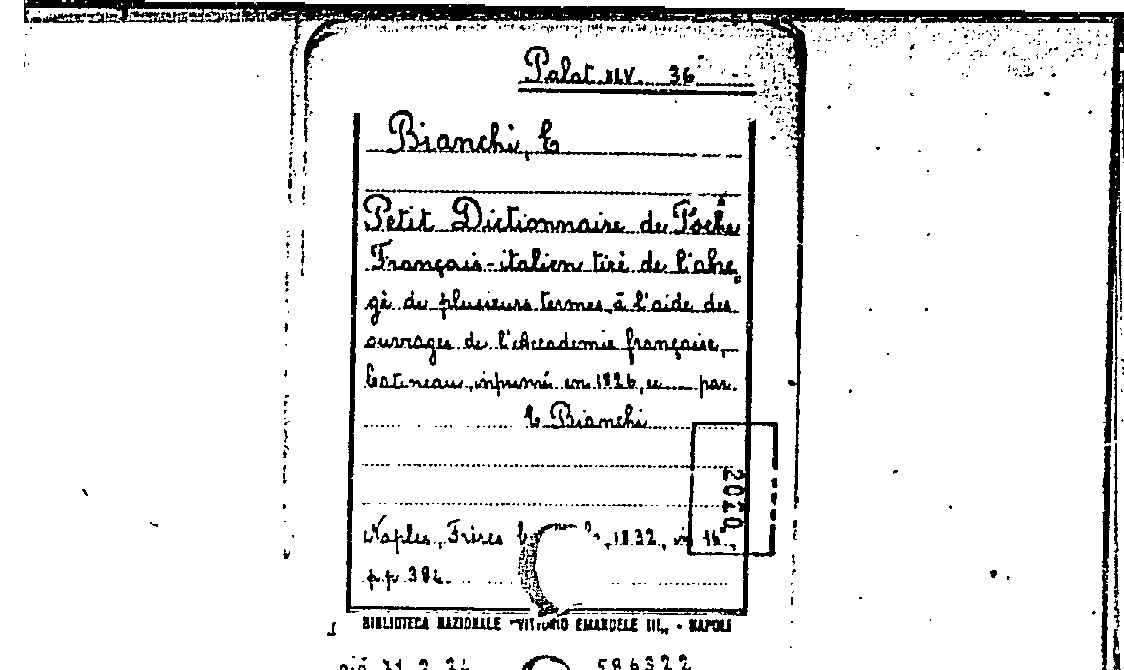 Palat. XLV. 36
Bianchi, E
Petit Dictionnaire de Poche
Français-italien tiré de l'abre
gé de plusieurs termes, à l'aide des
ouvrages de l'Accademie française,
Catineau, inprimé en 1826, par
E Bianchi
2020
Naples, Frères 1832, in 16.,
pp 384.
BIBLIOTECA NAZIONALE "VITTORIO EMANUELE III" - NAPOLI
596322